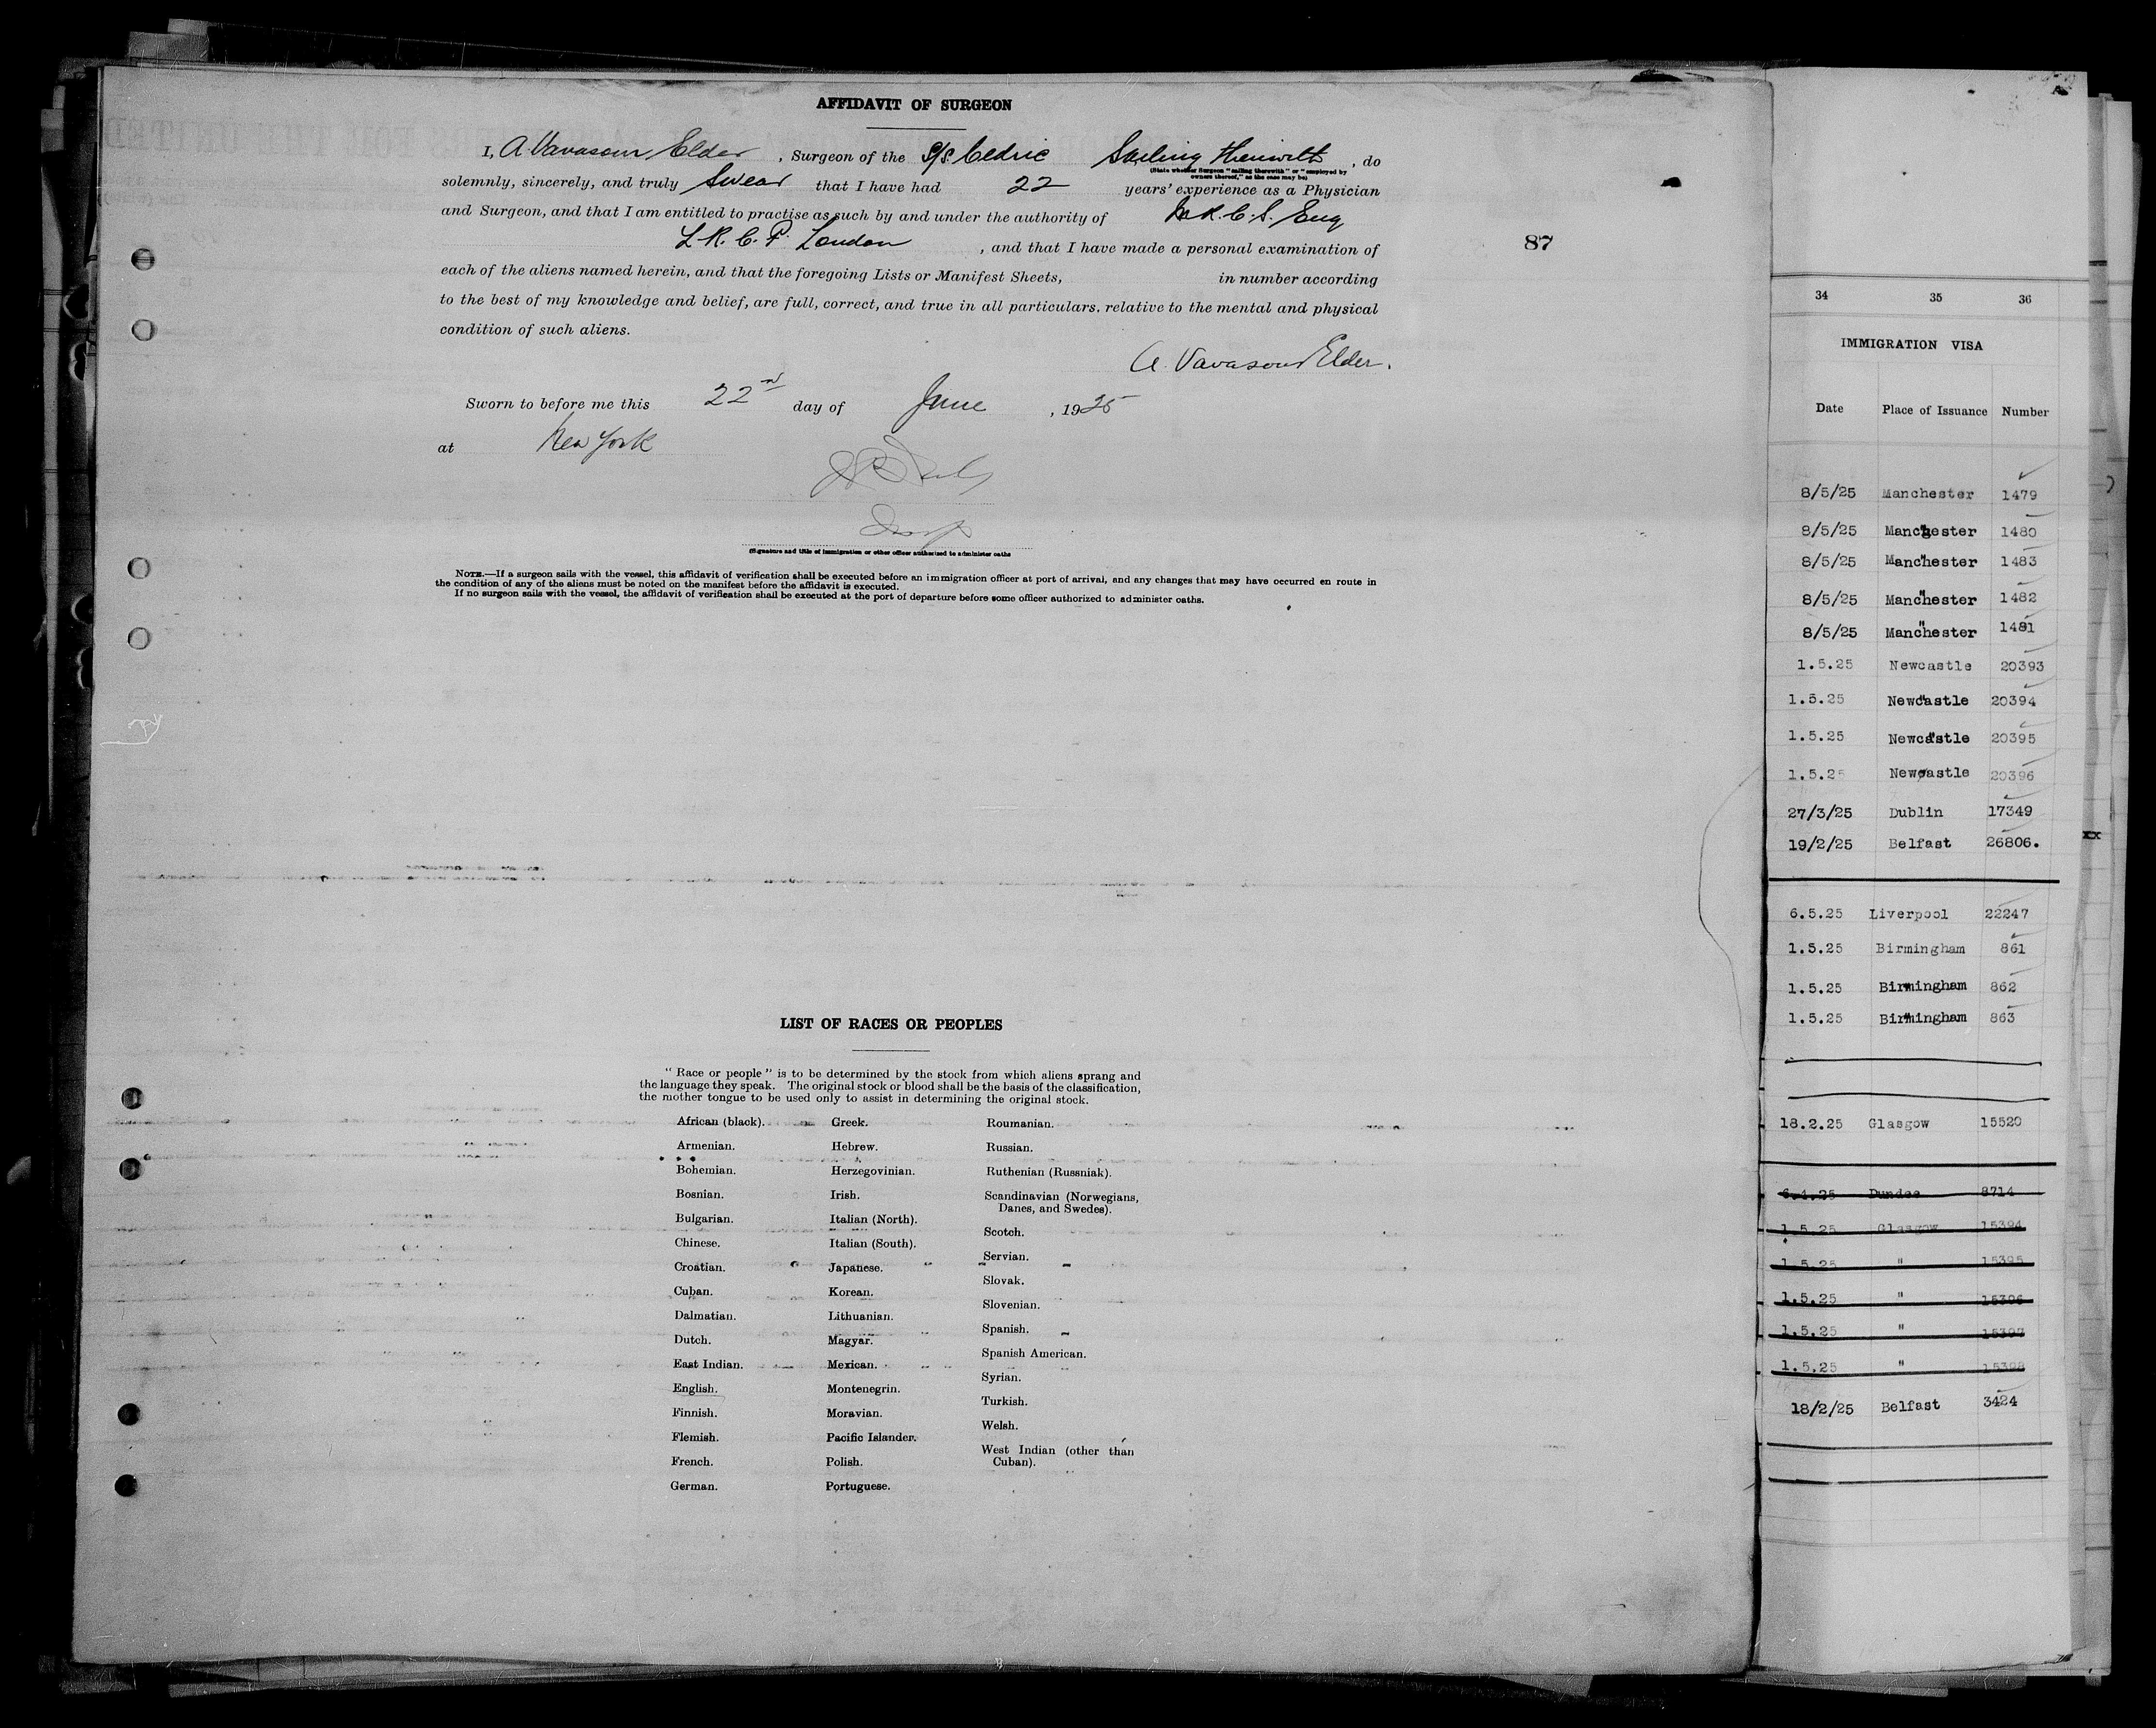 AFFIDAVIT OF SURGEON
I, A. Vavasour Elder, Surgeon of the S/S. Cedric Sailing therewith, do
(State whether Surgeon "sailing therewith" or "employed by
owners thereof," as the case may be)
solemnly, sincerely, and truly Swear that I have had 22 years' experience as a Physician
and Surgeon, and that I am entitled to practise as such by and under the authority of M.R.C.S. Eng
L.R.C.P. London, and that I have made a personal examination of
each of the aliens named herein, and that the foregoing Lists or Manifest Sheets, in number according
to the best of my knowledge and belief, are full, correct, and true in all particulars, relative to the mental and physical
condition of such aliens.
A. Vavasour Elder.
Sworn to before me this 22nd day of June, 1925
at New York
Insp
(Signature and title of immigration or other officer authorized to administer oaths
NOTE.—If a surgeon sails with the vessel, this affidavit of verification shall be executed before an immigration officer at port of arrival, and any changes that may have occurred en route in
the condition of any of the aliens must be noted on the manifest before the affidavit is executed.
If no surgeon sails with the vessel, the affidavit of verification shall be executed at the port of departure before some officer authorized to administer oaths.
87
LIST OF RACES OR PEOPLES
"Race or people" is to be determined by the stock from which aliens sprang and
the language they speak. The original stock or blood shall be the basis of the classification,
the mother tongue to be used only to assist in determining the original stock.
African (black).
Armenian.
Bohemian.
Bosnian.
Bulgarian.
Chinese.
Croatian.
Cuban.
Dalmatian.
Dutch.
East Indian.
English.
Finnish.
Flemish.
French.
German.
Greek.
Hebrew.
Herzegovinian.
Irish.
Italian (North).
Italian (South).
Japanese.
Korean.
Lithuanian.
Magyar.
Mexican.
Montenegrin.
Moravian.
Pacific Islander.
Polish.
Portuguese.
Roumanian.
Russian.
Ruthenian (Russniak).
Scandinavian (Norwegians,
Danes, and Swedes).
Scotch.
Servian.
Slovak.
Slovenian.
Spanish.
Spanish American.
Syrian.
Turkish.
Welsh.
West Indian (other than
Cuban).
34 35 36
IMMIGRATION VISA
Date Place of Issuance Number
8/5/25 Manchester 1479
8/5/25 Manchester 1480
8/5/25 Manchester 1483
8/5/25 Manchester 1482
8/5/25 Manchester 1481
1.5.25 Newcastle 20393
1.5.25 Newcastle 20394
1.5.25 Newcastle 20395
1.5.25 Newcastle 20396
27/3/25 Dublin 17349
19/2/25 Belfast 26806.
6.5.25 Liverpool 22247
1.5.25 Birmingham 861
1.5.25 Birmingham 862
1.5.25 Birmingham 863
18.2.25 Glasgow 15520
6.4.25 Dundee 8714
1.5.25 Glasgow 15394
1.5.25 " 15395
1.5.25 " 15396
1.5.25 " 15397
1.5.25 " 15398
18/2/25 Belfast 3424